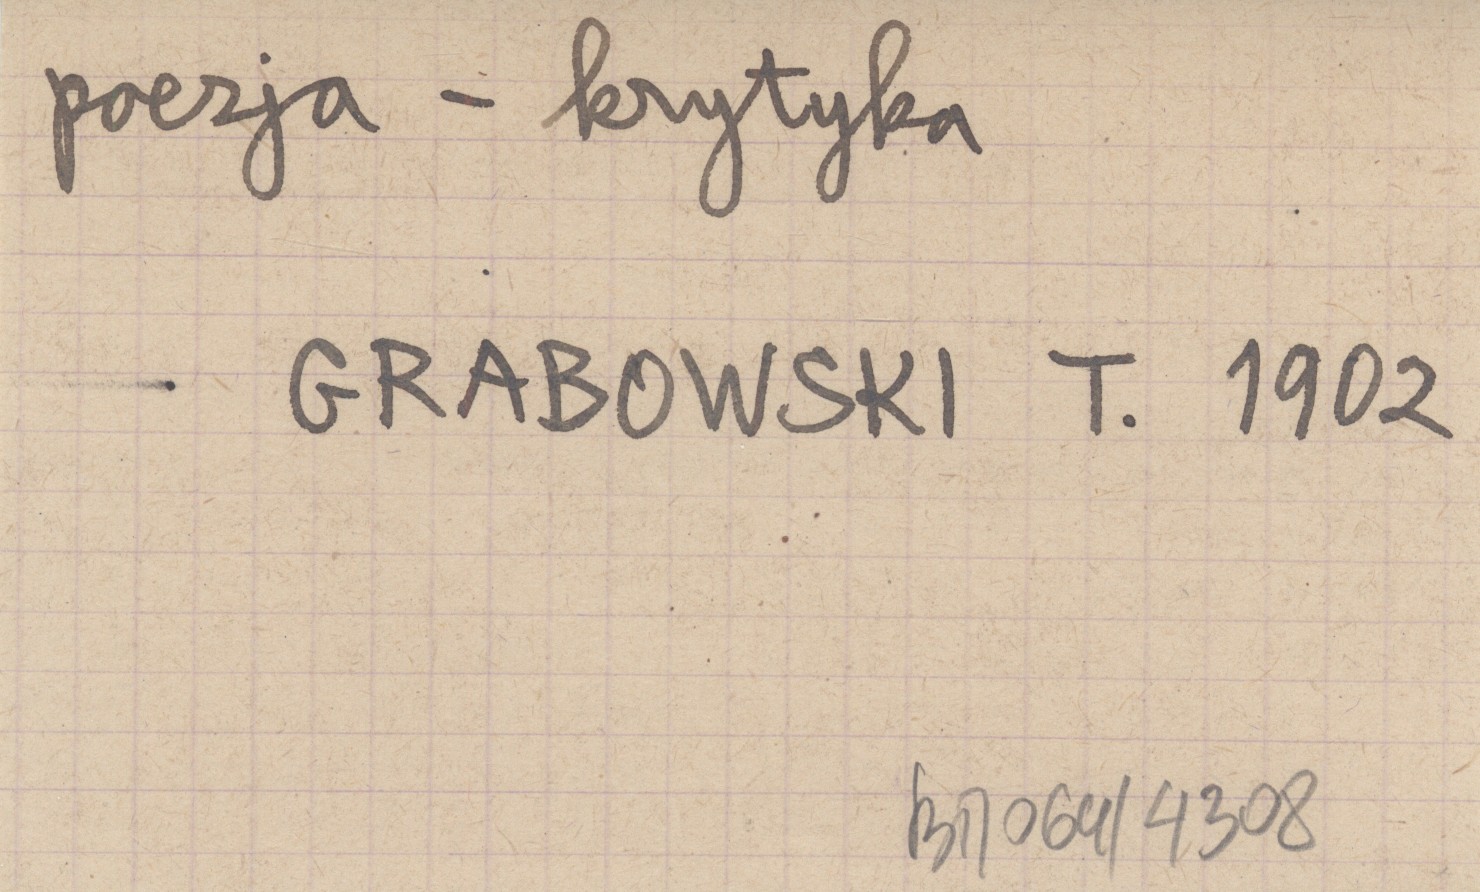 poezja - krytyka
GRABOWSKI T. 1902
064/4308